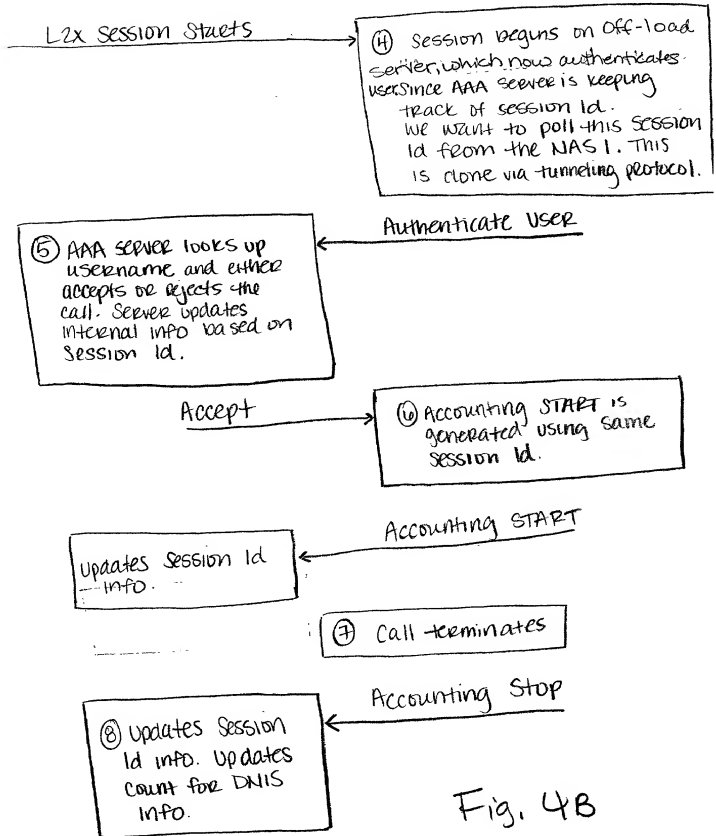 L2x Session Starts
④ Session begins on Off-load
server, which now authenticates
user. Since AAA Server is keeping
track of session Id.
We want to poll this session
Id from the NAS 1. This
is done via tunneling protocol.
Authenticate User
⑤ AAA Server looks up
username and either
accepts or rejects the
call. Server updates
internal info based on
Session Id.
Accept
⑥ Accounting START is
generated using same
session Id.
Accounting START
Updates Session Id
info.
⑦ Call terminates
Accounting Stop
⑧ Updates Session
Id info. Updates
count for DNIS
info.
Fig. 4B